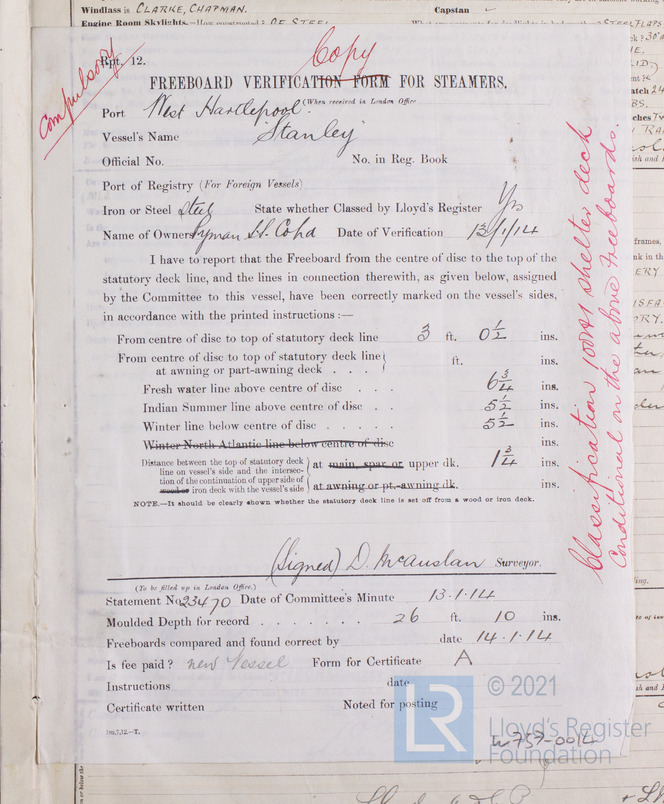 Windlass is CLARKE, CHAPMAN.
Capstan
Engine Room Skylights.—How constructed? OF STEEL
Copy
compulsory
Rpt. 12.
FREEBOARD VERIFICATION FORM FOR STEAMERS.
(When received in London Office
Port West Hartlepool.
Vessel's Name "Stanley"
Official No. No. in Reg. Book
Port of Registry (For Foreign Vessels)
Iron or Steel Steel State whether Classed by Lloyd's Register Yes
Name of Owners Date of Verification 13/1/14
I have to report that the Freeboard from the centre of disc to the top of the
statutory deck line, and the lines in connection therewith, as given below, assigned
by the Committee to this vessel, have been correctly marked on the vessel's sides,
in accordance with the printed instructions :—
From centre of disc to top of statutory deck line 3 ft. 0 1/2 ins.
From centre of disc to top of statutory deck line
at awning or part-awning deck . . . ft. ins.
Fresh water line above centre of disc . . . 6 3/4 ins.
Indian Summer line above centre of disc . . 5 1/2 ins.
Winter line below centre of disc . . . . . 5 1/2 ins.
Winter North Atlantic line below centre of disc ins.
Distance between the top of statutory deck
line on vessel's side and the intersec-
tion of the continuation of upper side of
wood or iron deck with the vessel's side
at main, spar, or upper dk. 1 3/4 ins.
at awning or pt.-awning dk. ins.
NOTE.—It should be clearly shown whether the statutory deck line is set off from a wood or iron deck.
(Signed) D. McAuslan Surveyor.
(To be filled up in London Office.)
Statement No. 23470 Date of Committee's Minute 13.1.14
Moulded Depth for record . . . . . . . 26 ft. 10 ins.
Freeboards compared and found correct by date 14.1.14
Is fee paid? new Vessel Form for Certificate A
Instructions date
Certificate written Noted for posting
1m,7,12.—T.
Classification 100A1 shelter deck
Conditional on the above freeboards.
LR
© 2021
Lloyd's Register
Foundation
W757-0014